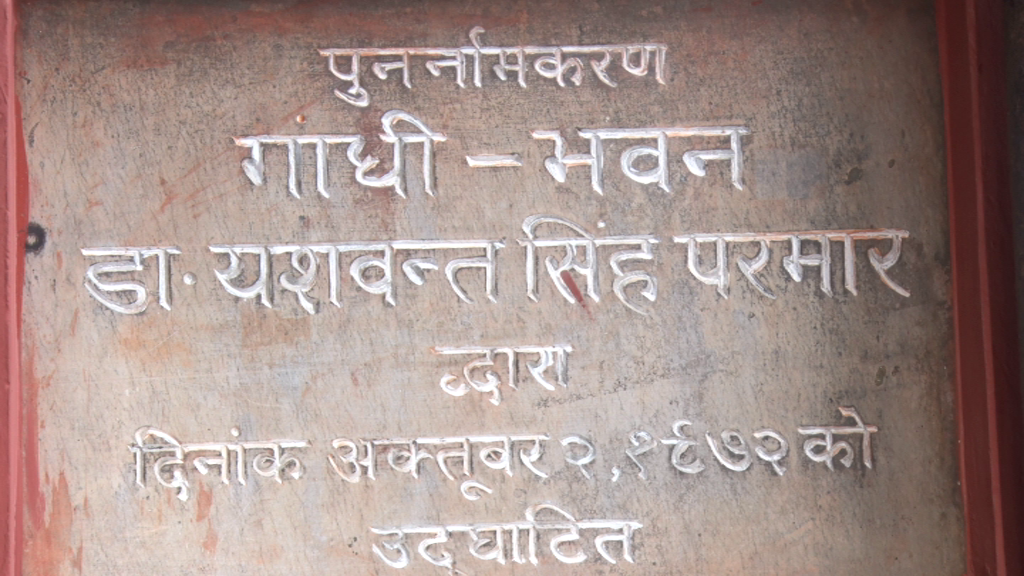 पुनर्नामकरण
गांधी – भवन
डा॰ यशवन्त सिंह परमार
द्वारा
दिनांक अक्तूबर २,१९७२ को
उद्घाटित